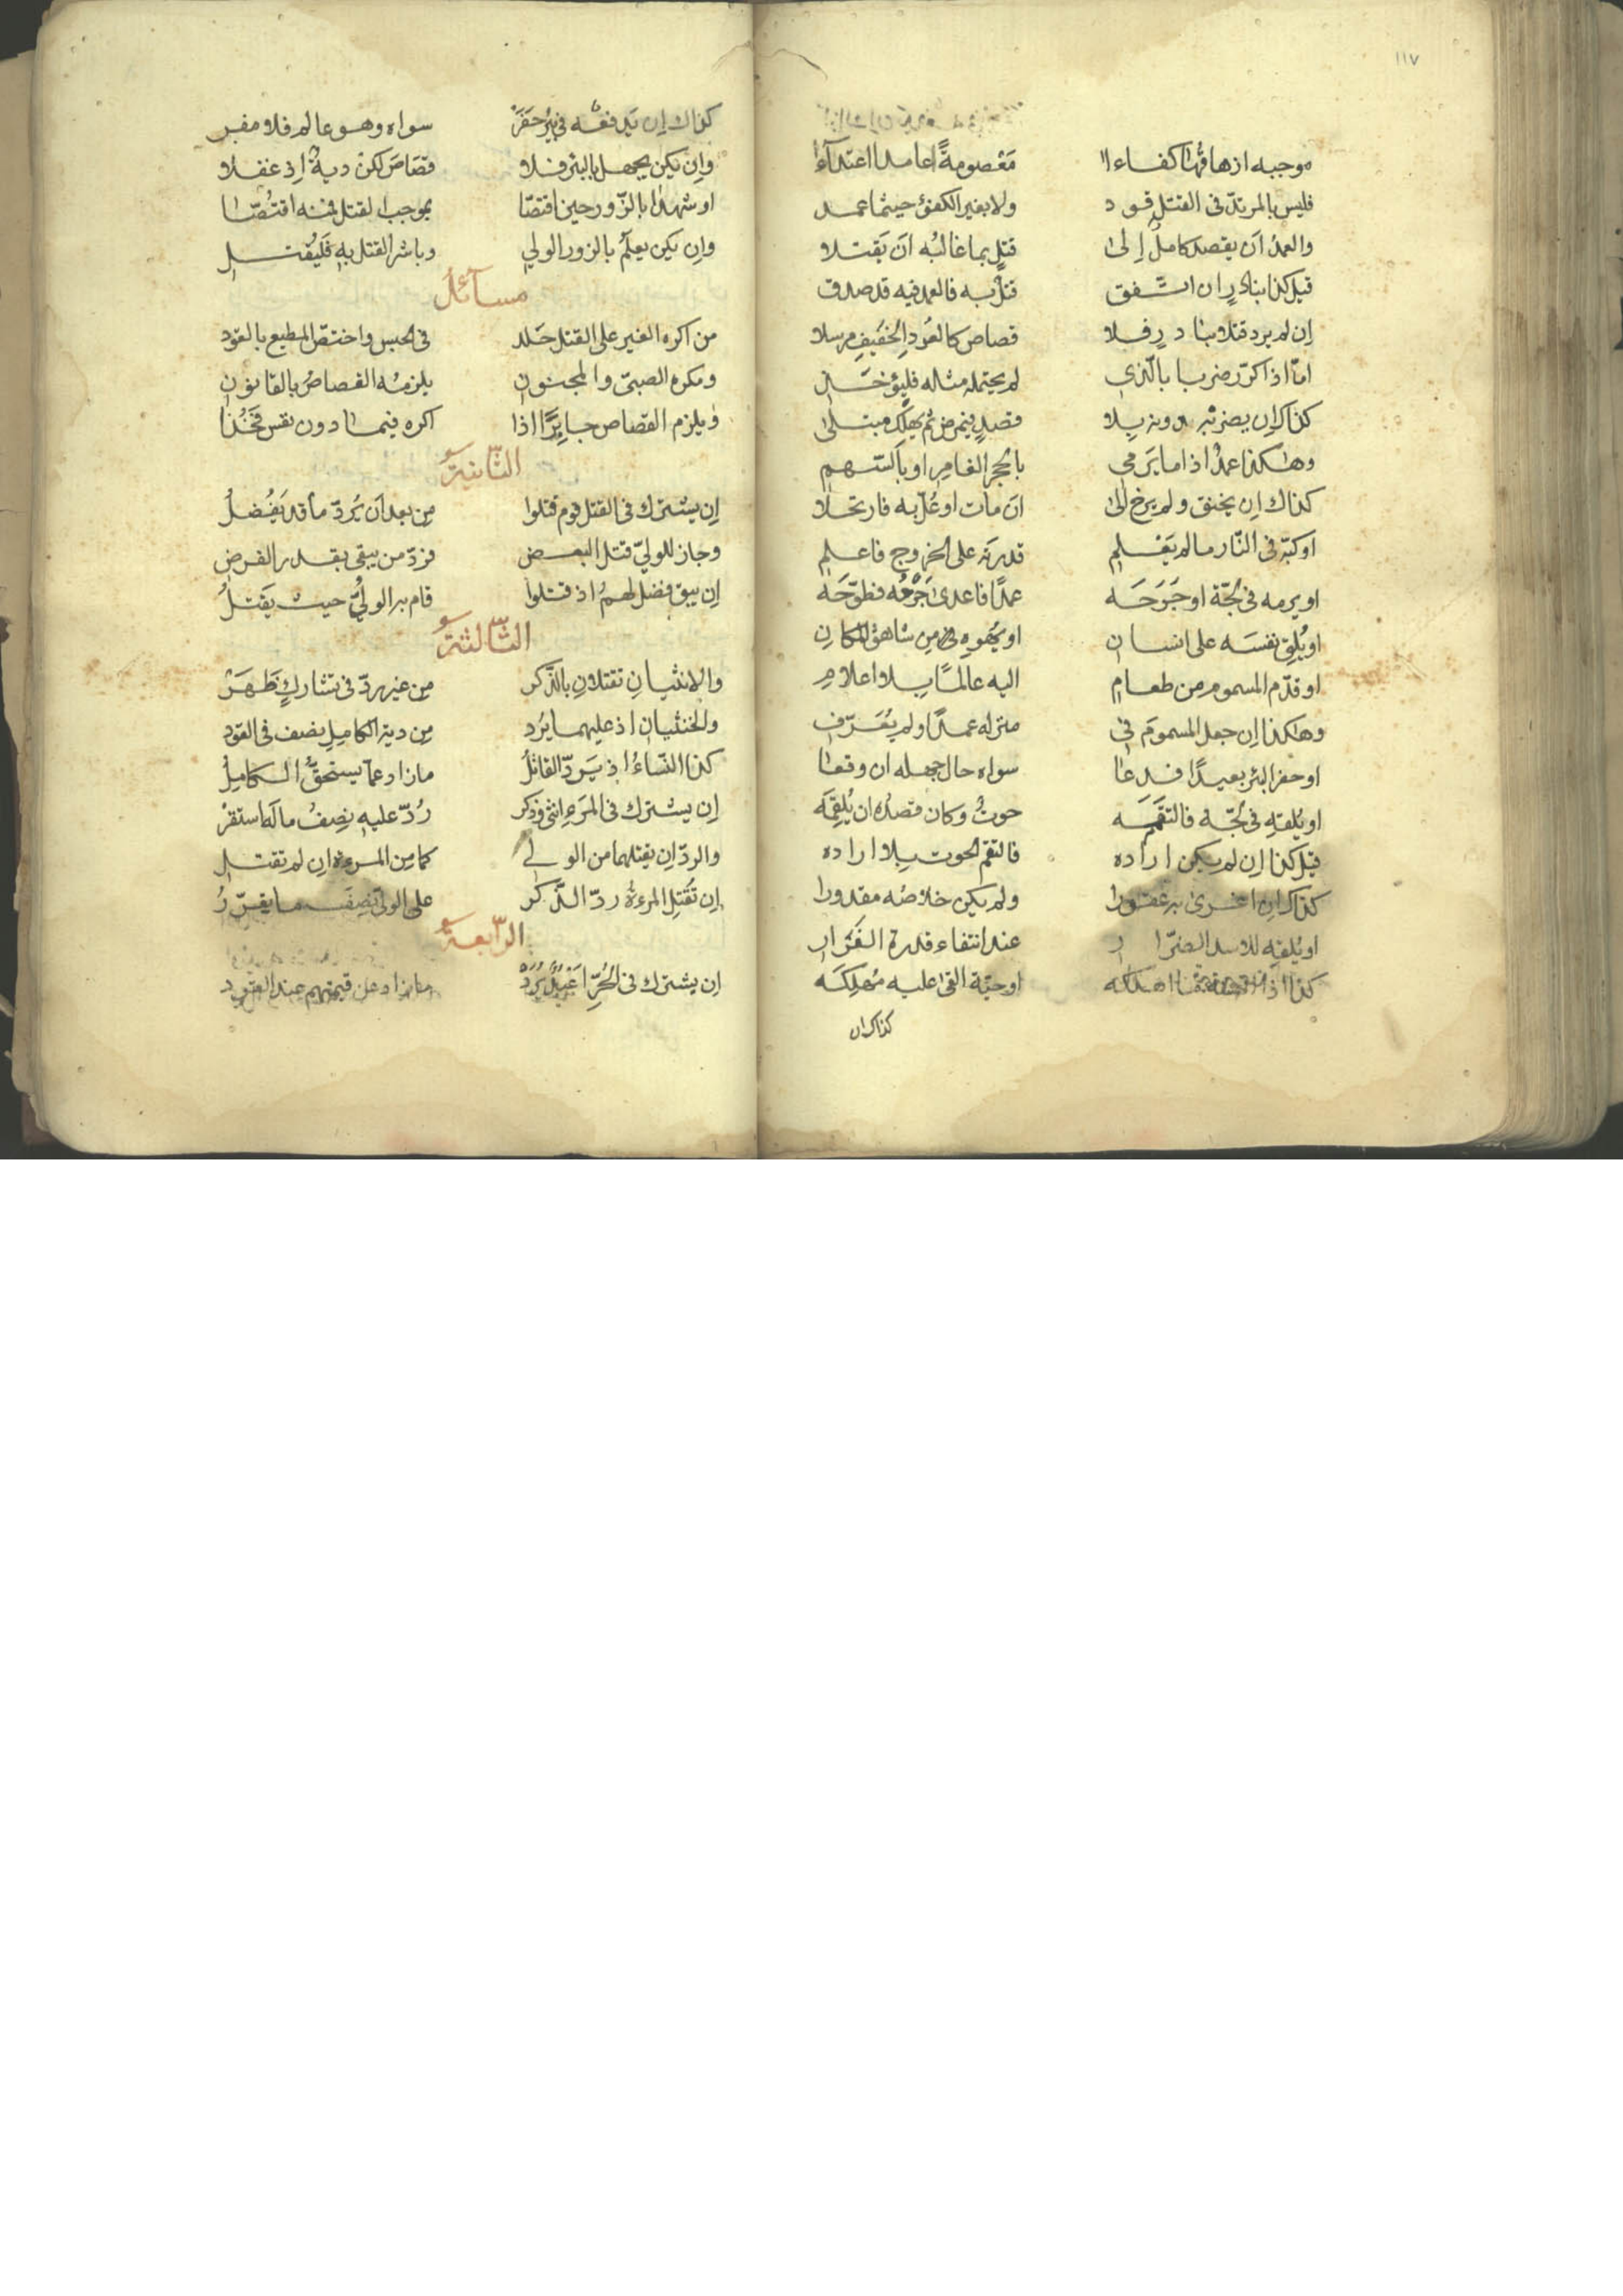 ١١٧
موجبه ازهاقها كفاءا مَعْصومةً عامدا اعتداءً
فليس بالمرتدّ فى القتل قود ولا بغير الكفئ حيثما عمد
والعمدُ اَن يقصد كاملٌ إلى قتلٍ بما غالبُه اَن يَقتلا
قيل كذا بنادرٍ ان اتّفق قتلٌ به فالعمد فيه قد صدق
إن لم يرد قتلا بنادرٍ فلا قصاص كالعُودِ الخفيفِ مرسلا
امّا اذا كرّر ضربا بالّذى لم يحتمله مثاله فليؤخذ
كذاك إن يضربْه دونه بلا قصدٍ فيمرض ثم يهلك مبتلى
وهكذا عمدٌ اذا ما يَرمى بالحجر الغامِر او بالسّهم
كذاك ان يخنق ولم يرخ الى ان مات او عُلّ به فارتحلا
او كبّه فى النّار ما لم يَعْلم قدرته على الخروج فاعلم
او يرمه فى لُجّة او جَرَحَه عمدًا فاعدى جَرْحُه فطوّحَه
او يُلقِ نفسَه على انسان او يُهوِه من شاهق المكانِ
او قدّم المسموم من طعام اليه عالمًا بلا اعلامِ
وهكذا إن جعل المسمومَ فى منزله عمدًا ولم يُعَرّف
او حفر البئر بعيدًا فدعا سواه حال جهله ان وقعا
او يُلقه فى لُجّه فالتقمَه حوتٌ وكان قصدُه ان يُلقِمَه
قيل كذا إن لم يكن اراده فالتقم الحوت بلا اراده
كذاك إن اغرى به عقورا ولم يكن خلاصُه مقدورا
او يُلقِه للاسد الضرّار عند انتفاء قدرة الفَرَار
كذا اذا اهلكه او حيّة القى عليه مُهلِكَه
كذاك ان
كذاك إن يدفعْه فى بئرٍ حفَرْ سواه وهو عالم فلا مفر
وإن يكن يجهل بالبئر فلا قصَاصَ لكنْ ديةٌ إذ غفلا
او شهدا بالزّور حين اقتصّا بموجب القتل فمنه اقتُصّا
وإن يكن يعلمُ بالزور الولي وباشر القتل به فليُقتل
مسائل
من اكره الغير على القتل خلد فى الحبس واختصّ المطيع بالقود
ومكره الصبىّ والمجنون يلزمُه القصاصُ بالقانون
ويلزم القصاص جابرًا اذا اكره فيما دون نفس فخُذا
الثّانية
إن يشترك فى القتل قوم قتلوا مِن بعد اَن يُردّ ما قد يَفْضلُ
وجاز للولىّ قتل البعض فردّ من يبقى بقدر الفرض
إن يبق فضل لهمُ اذ قتلوا قام به الولىُّ حيث يَقتلُ
الثّالثة
والانثيانِ تقتلانِ بالذّكر مِن غير ردّ فى تشاركٍ ظهَرْ
والخنثيان اذ عليهما يُرد مِن دية الكامِل نصف فى القود
كذا النّساءُ اذ يَردّ القاتلُ ما زاد عمّا يستحقُّ الكامِلُ
إن يشترك فى المَرءِ انثى وذكر رُدّ عليه نِصفُ ما له استقرْ
والردّ ان يقتلهما من الولي كما مِن المرءة ان لم تقتل
إن تُقتلِ المرءةُ ردّ الذّكر على الولى نصفَ ما يقرّرُ
الرّابعة
إن يشترك فى الحُرّ اَعْبُدٌ يُرَدْ ما زاد عن قيمتهم عند القود